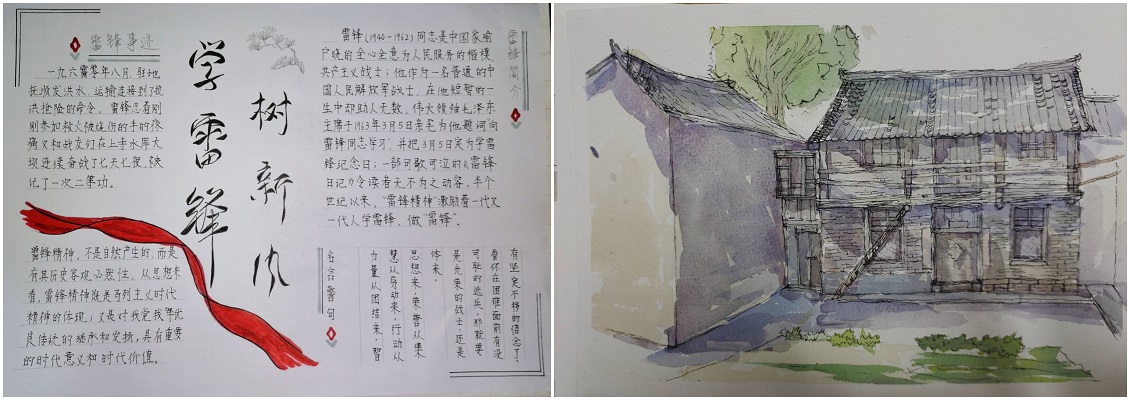 雷锋事迹
一九六零年八月,驻地
抚顺发洪水,运输连接到了抗
洪抢险的命令。雷锋忍着刚
刚参加救火被烧伤的手的疼
痛又和战友们在上寺水库大
坝连续奋战了七天七夜,被
记了一次二等功。
学雷锋
树新风
雷锋简介
雷锋(1940~1962)同志是中国家喻
户晓的全心全意为人民服务的楷模,
共产主义战士;他作为一名普通的中
国人民解放军战士,在他短暂的一
生中却助人无数,伟大领袖毛泽东
主席于1963年3月5日亲笔为他题词向
雷锋同志学习,并把3月5日定为学雷
锋纪念日;一部可歌可泣的《雷锋
日记》令读者无不为之动容。半个
世纪以来,“雷锋精神”激励着一代又
一代人学雷锋,做“雷锋”。
雷锋精神,不是自然产生的,而是
有其历史客观必然性,从思想来
看,雷锋精神既是马列主义时代
精神的体现;又是对我党我军优
良传统的继承和发扬,具有重要
的时代意义和时代价值。
名言警句
有坚定不移的信念了。
看你在困难面前有没
可耻的逃兵,那就要
是光荣的战士,还是
体来。
思想来,荣誉从集
慧从劳动来,行动从
力量从团结来,智